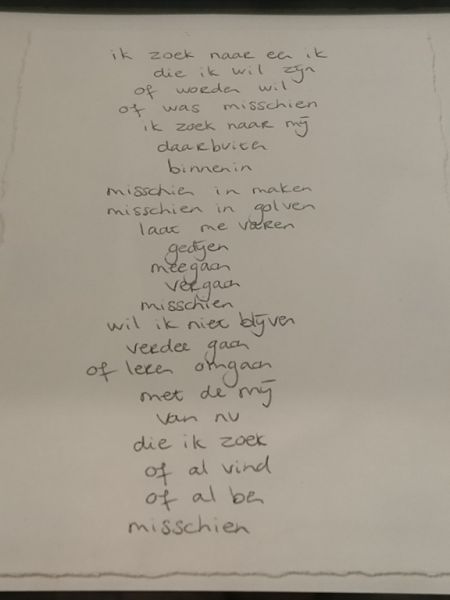 ik zoek naar een ik
die ik wil zijn
of worden wil
of was misschien
ik zoek naar mij
daarbuiten
binnenin
misschien in maken
misschien in golven
laat me varen
gedijen
meegaan
vergaan
misschien
wil ik niet blijven
verder gaan
of leren omgaan
met de mij
van nu
die ik zoek
of al vind
of al ben
misschien